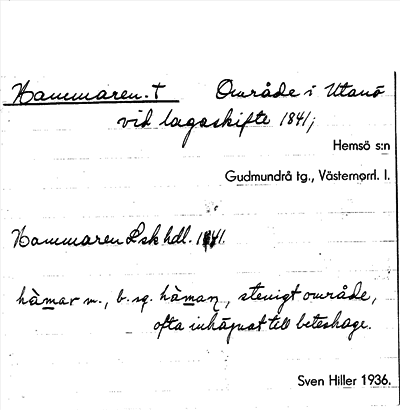 Hammaren. † Område i Utanö
vid lagaskifte 1841;
Hemsö s:n
Gudmundrå tg., Västernorrl. l.
Hammaren Lsk hdl. 1841.
hàmar m., b. sg. hàman, stenigt område,
ofta inhägnat till beteshage.
Sven Hiller 1936.